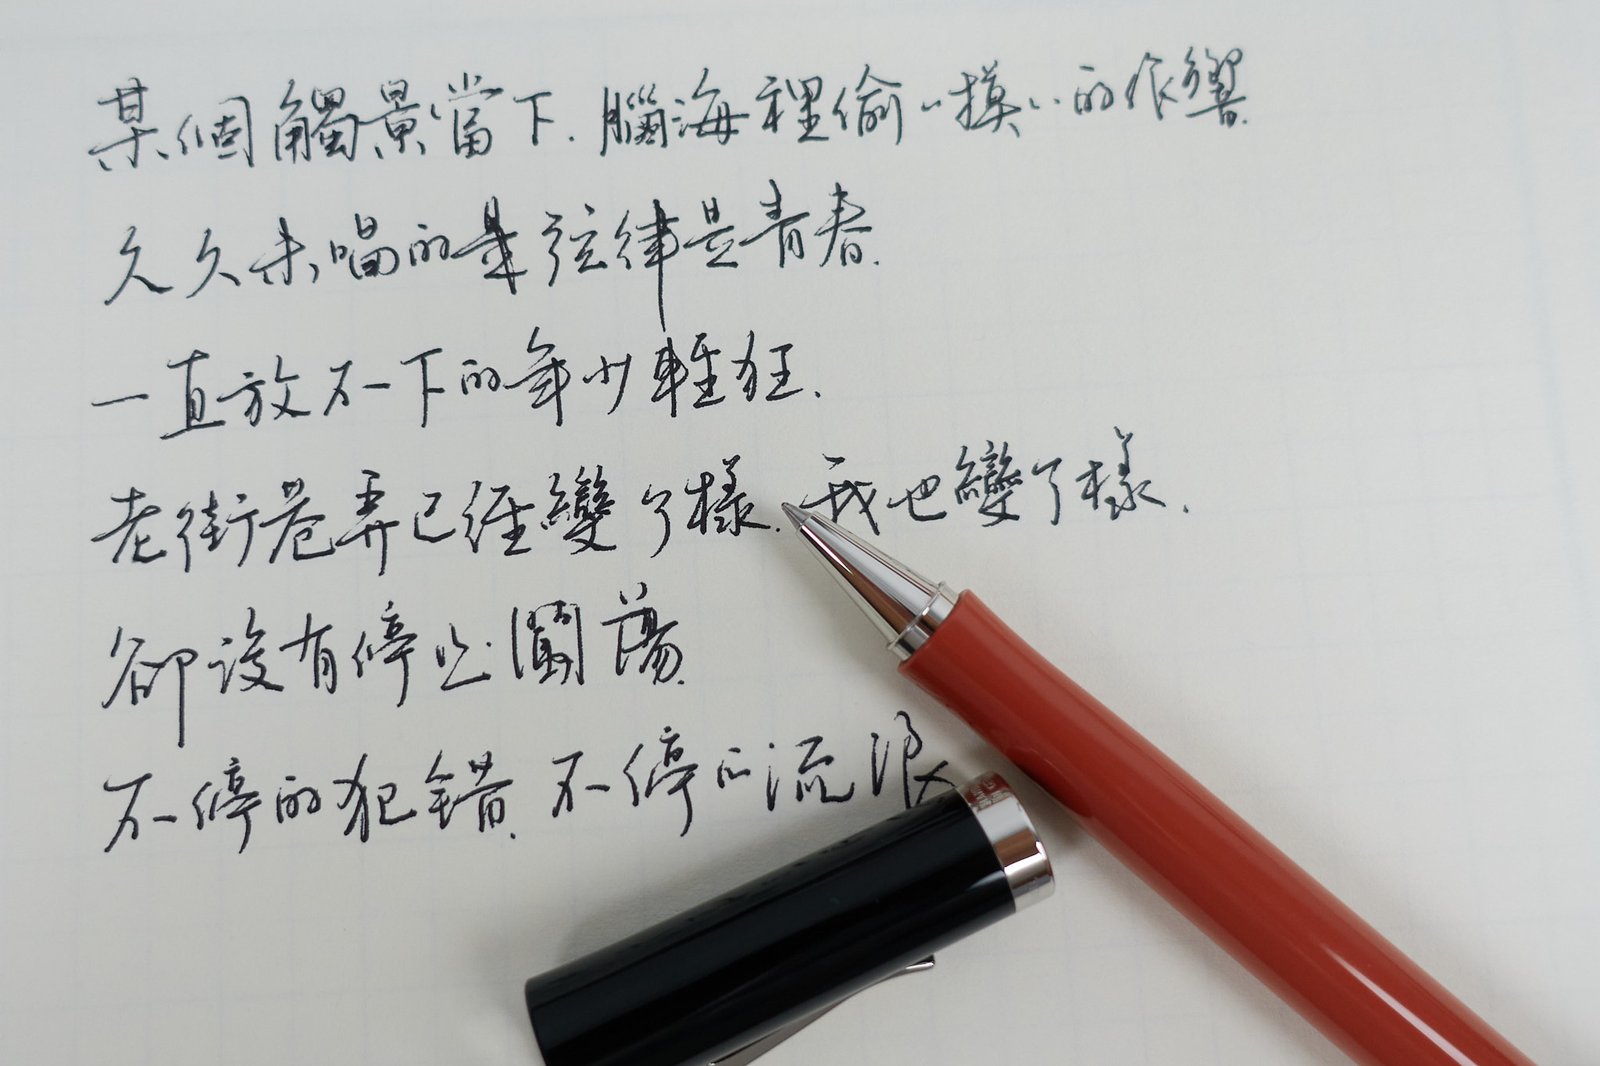 某個觸景當下.腦海裡偷偷摸摸的作響.
久久未唱的是弦律是青春.
一直放不下的年少輕狂.
老街巷弄已經變了樣.我也變了樣.
卻沒有停止闖蕩.
不停的犯錯.不停的流浪